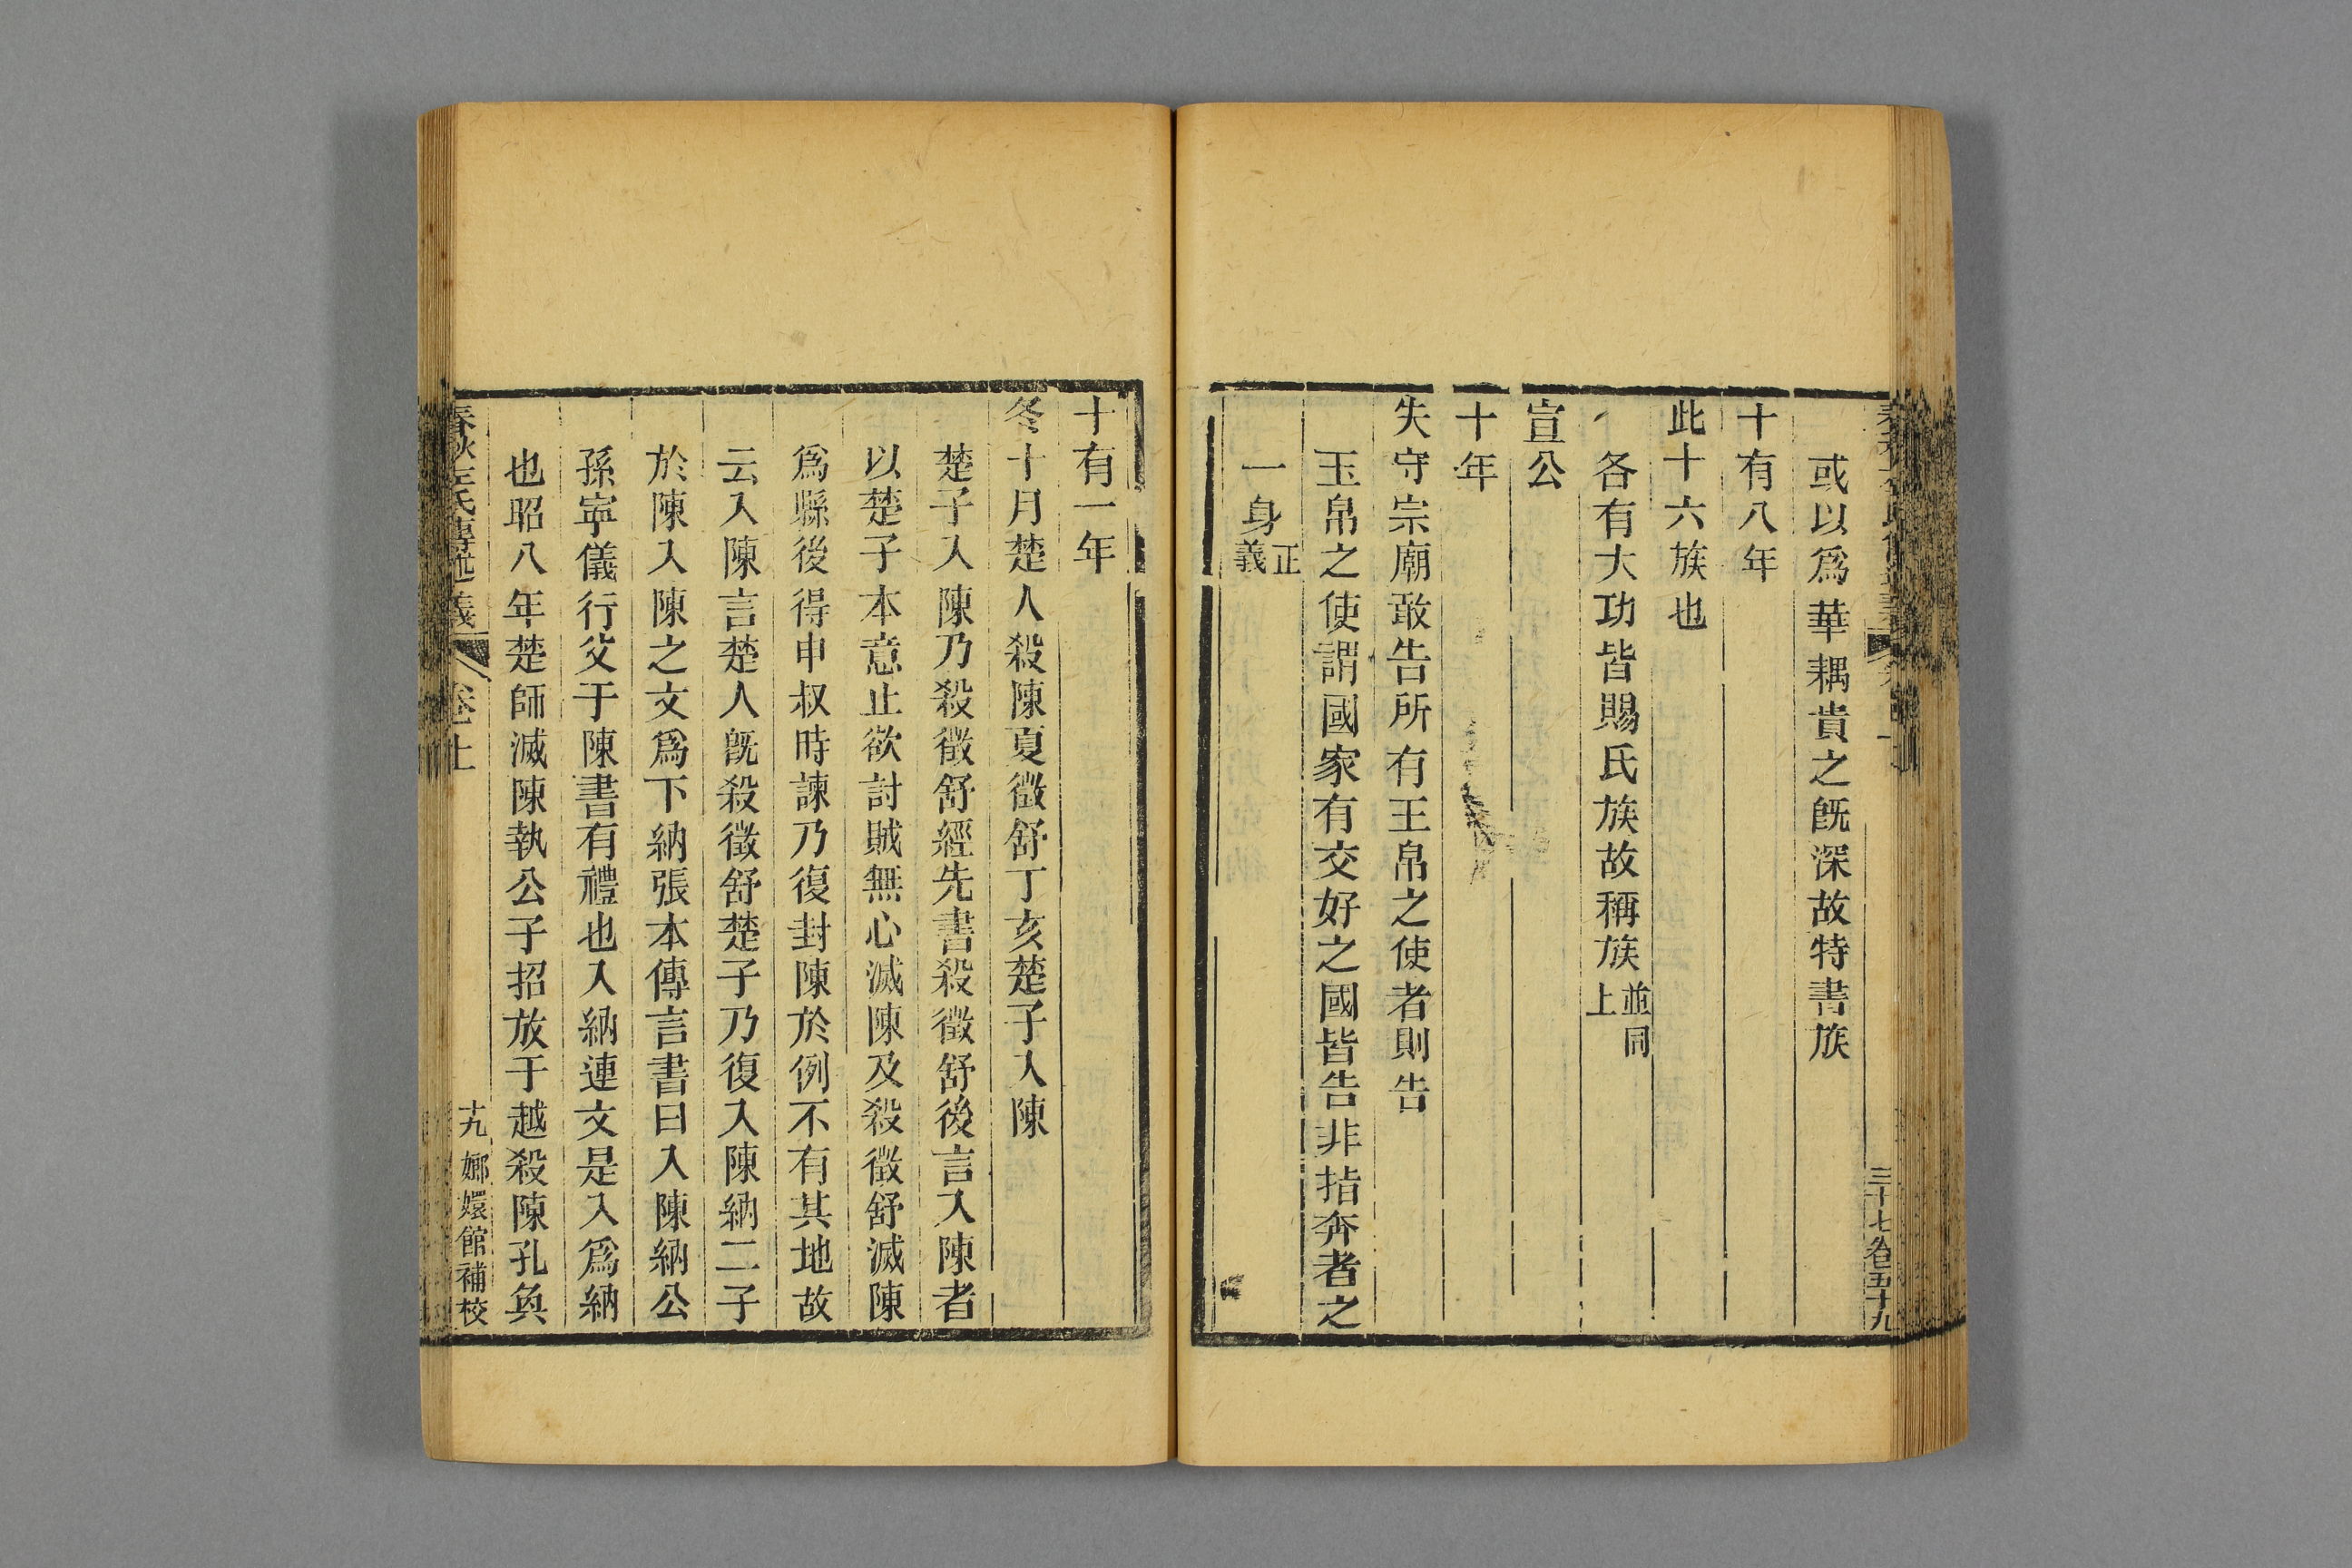 或以爲華耦貴之旣深故特書族
十有八年
此十六族也
各有大功皆賜氏族故稱族並同上
宣公
十年
失守宗廟敢告所有玉帛之使者則告
玉帛之使謂國家有交好之國皆告非指奔者之
一身正義
三十七卷五十九
十有一年
冬十月楚人殺陳夏徵舒丁亥楚子入陳
楚子入陳乃殺徵舒經先書殺徵舒後言入陳者
以楚子本意止欲討賊無心滅陳及殺徵舒滅陳
爲縣後得申叔時諫乃復封陳於例不有其地故
云入陳言楚人旣殺徵舒楚子乃復入陳納二子
於陳入陳之文爲下納張本傳言書曰入陳納公
孫寧儀行父于陳書有禮也入納連文是入爲納
也昭八年楚師滅陳執公子招放于越殺陳孔奐
春秋左氏傳述義 卷上 十九 嫏嬛館補校